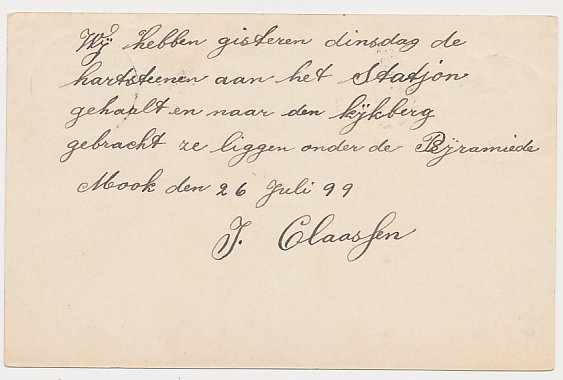 Wij hebben gisteren dinsdag de
hartsteenen aan het Statjon
gehaalt en naar den kijkberg
gebracht ze liggen onder de Pijramiede
Mook den 26 Juli 99
J. Claassen